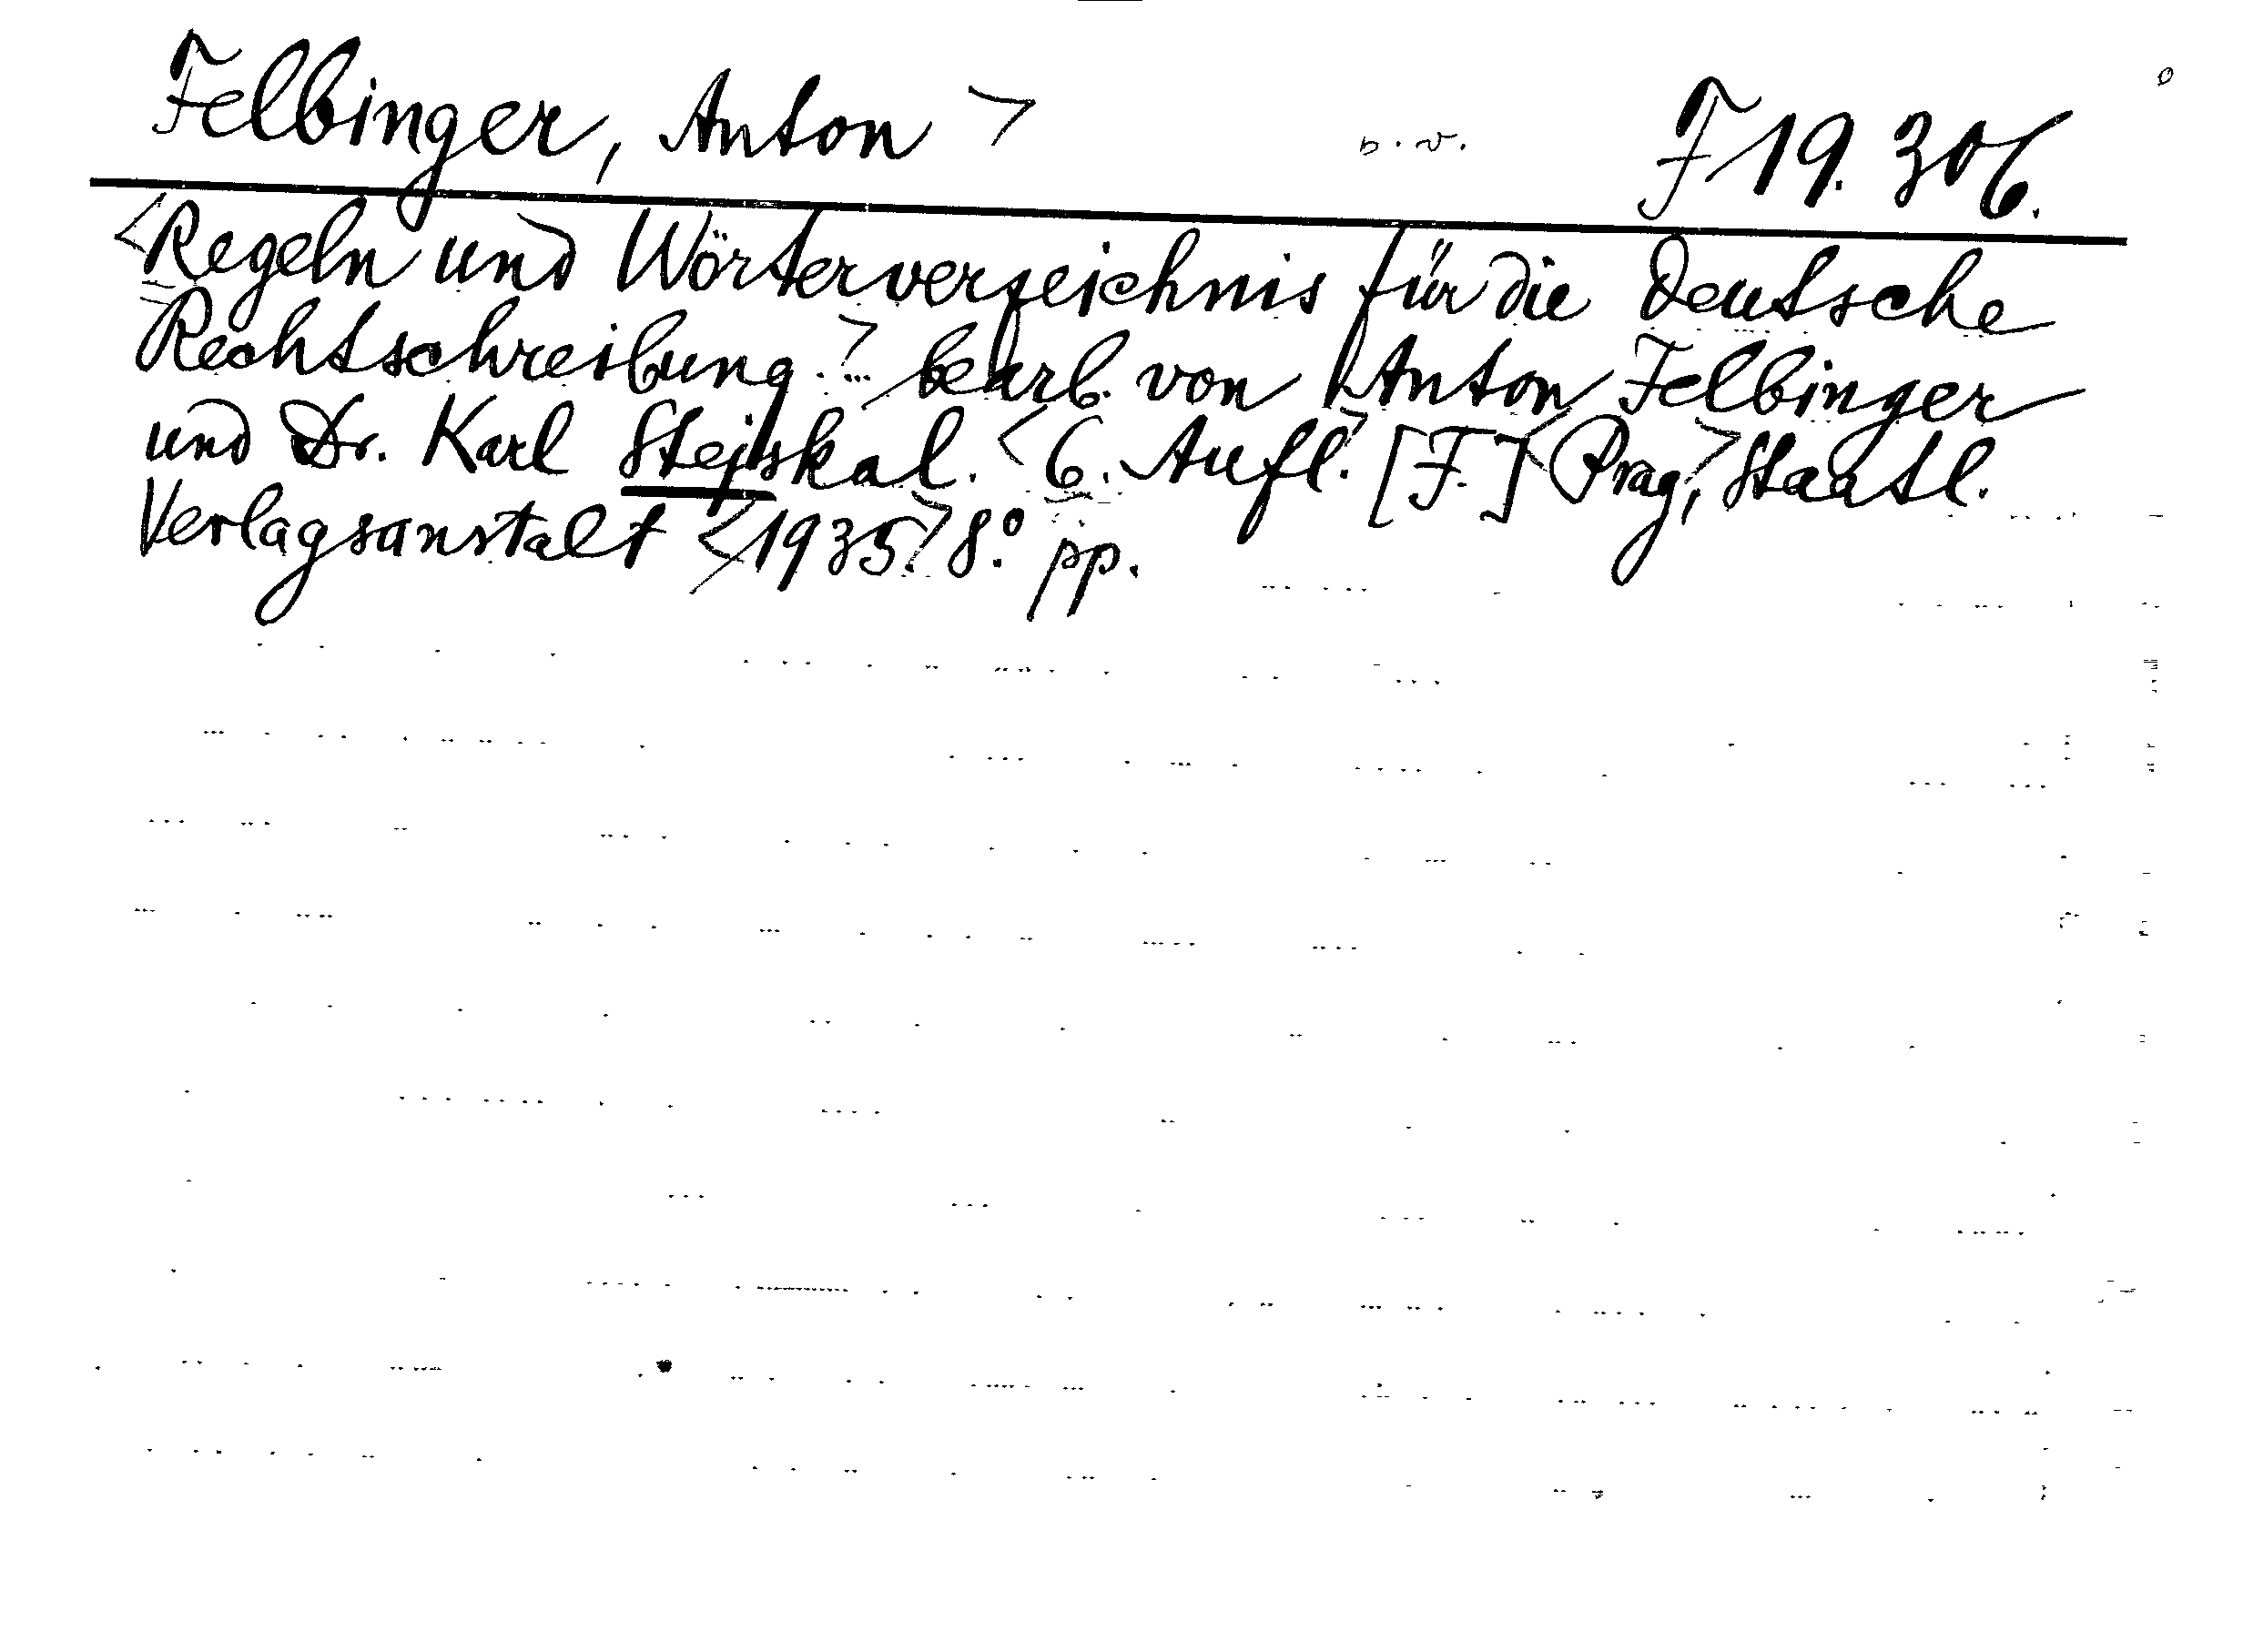 Felbinger, Anton > b.v. F 19.306.
<Regeln und Wörterverzeichnis für die Deutsche
Rechtschreibung.> bearb. von Anton Felbinger
und Dr. Karl Stejskal. <6. Aufl.> [F.] <Prag,> Staatl.
Verlagsanstalt <1935.> 8.° pp.